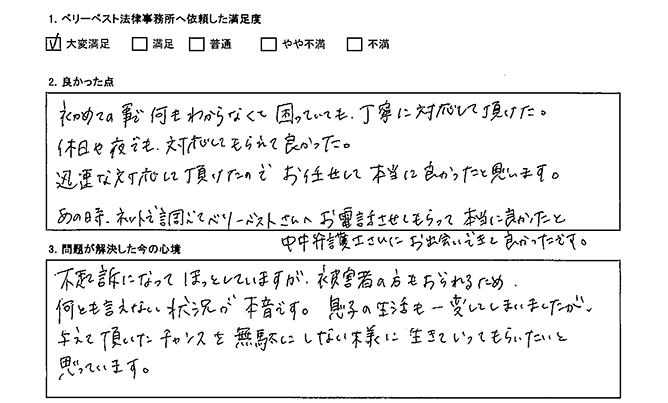 1. ベリーベスト法律事務所へ依頼した満足度
大変満足 満足 普通 やや不満 不満
2. 良かった点
初めての事で何もわからなくて困っていても、丁寧に対応して頂けた。
休日や夜でも、対応してもらえて良かった。
迅速な対応して頂けたので お任せして本当に良かったと思います。
あの時、ネットで調べてベリーベストさんへお電話させてもらって本当に良かったと
中中弁護士さんにお出会いできて良かったです。
3. 問題が解決した今の心境
不起訴になってほっとしていますが、被害者の方もおられるため、
何とも言えない状況が本音です。息子の生活も一変してしまいましたが、
与えて頂いたチャンスを無駄にしない様に生きていってもらいたいと
思っています。